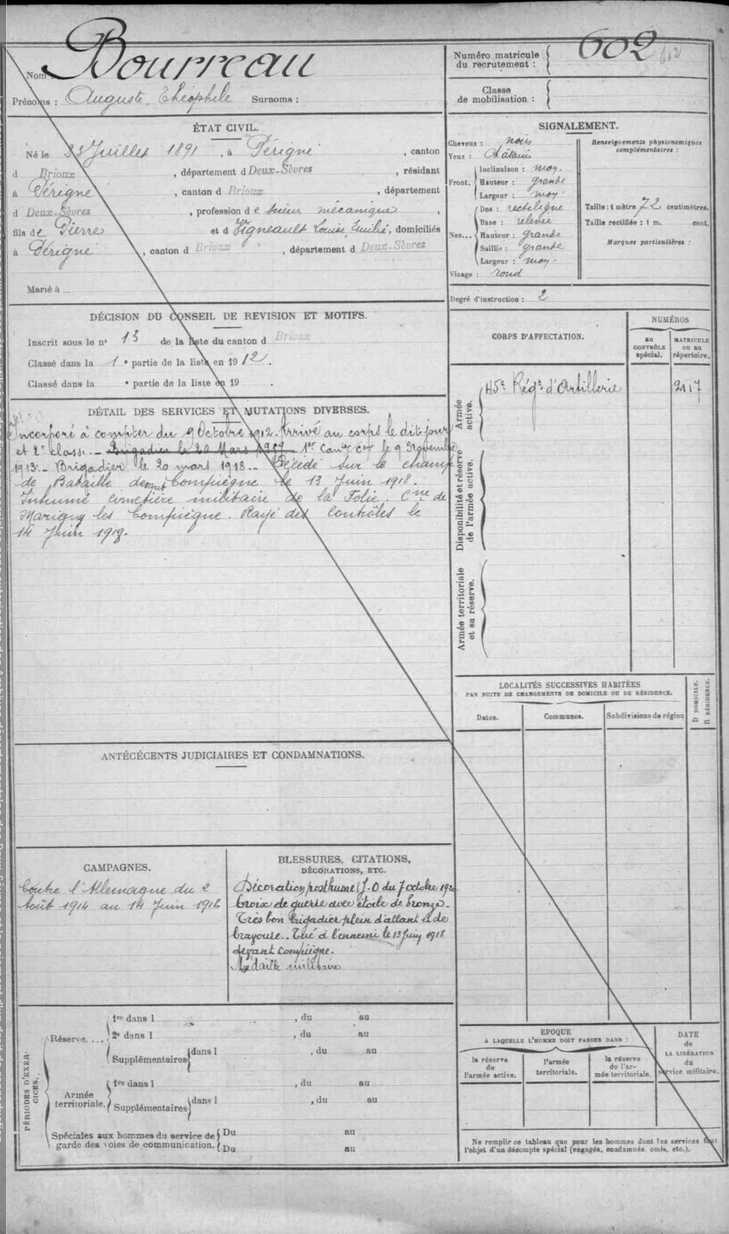 Nom : Bourreau
Prénoms : Auguste, Théophile Surnoms :
Numéro matricule du recrutement : 602
Classe de mobilisation :
ÉTAT CIVIL.
Né le Juillet 1891, à Périgné, canton
d Brioux, département d Deux-Sèvres, résidant
à Périgné, canton d Brioux, département
d Deux-Sèvres, profession d mécanique,
fils de Pierre et de Vigneault Louise, Emilie, domiciliés
à Périgné, canton d Brioux, département d Deux-Sèvres
Marié à
SIGNALEMENT.
Cheveux : noirs
Yeux : châtains
Front. Inclinaison : moy.
Hauteur : grande
Largeur : moy.
Nez... Dos : rectiligne
Base : relevée
Hauteur : grande
Saillie : grande
Largeur : moy.
Visage : rond
Renseignements physionomiques complémentaires :
Taille : 1 mètre 72 centimètres.
Taille rectifiée : 1 m. cent.
Marques particulières :
Degré d'instruction : 2
DÉCISION DU CONSEIL DE REVISION ET MOTIFS.
Inscrit sous le n° 13 de la liste du canton d Brioux
Classé dans la 1e partie de la liste en 1912.
Classé dans la e partie de la liste en 19 .
DÉTAIL DES SERVICES ET MUTATIONS DIVERSES.
Incorporé à compter du 9 Octobre 1912. Arrivé au corps le dit jour
et 2e classe. - Brigadier le 20 Mars 1er Cann. Cr le 9 Novembre
1913. - Brigadier le 20 mars 1918. - Décédé sur le champ
de Bataille devant Compiègne le 13 Juin 1918.
Inhumé cimetière militaire de la Folie. Cne de
Marigny les Compiègne. Rayé des Contrôles le
14 Juin 1918.
CORPS D'AFFECTATION.
NUMÉROS
AU CONTRÔLE spécial.
MATRICULE OU AU répertoire.
Armée active.
Régt d'Artillerie 2117
Disponibilité et réserve de l'armée active.
Armée territoriale et sa réserve.
LOCALITÉS SUCCESSIVES HABITÉES
PAR SUITE DE CHANGEMENTS DE DOMICILE OU DE RÉSIDENCE.
Dates. Communes. Subdivisions de région D DOMICILE. R RÉSIDENCE.
ANTÉCÉDENTS JUDICIAIRES ET CONDAMNATIONS.
CAMPAGNES.
Contre l'Allemagne du 2
Août 1914 au 14 Juin 1918
BLESSURES, CITATIONS,
DÉCORATIONS, ETC.
Décoration posthume (J.O du 7 octobre
Croix de guerre avec étoile de bronze.
Très bon brigadier plein d'allant et de
bravoure. Tué à l'ennemi le 13 Juin 1918
devant Compiègne.
Médaille militaire
PÉRIODES D'EXERCICES.
Réserve.... 1re dans l , du au
2e dans l , du au
Supplémentaires dans l , du au
Armée territoriale. 1re dans l , du au
Supplémentaires dans l , du au
Spéciales aux hommes du service de garde des voies de communication. Du au
Du au
EPOQUE
A LAQUELLE L'HOMME DOIT PASSER DANS :
la réserve de l'armée active.
l'armée territoriale.
la réserve de l'armée territoriale.
DATE de LA LIBÉRATION du service militaire.
Ne remplir ce tableau que pour les hommes dont les services font
l'objet d'un décompte spécial (engagés, condamnés, omis, etc.).